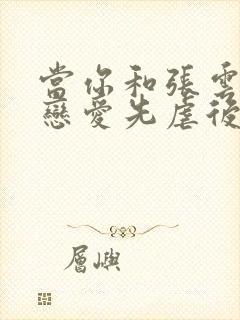 當你和張雲
戀愛先虐後
層嶼